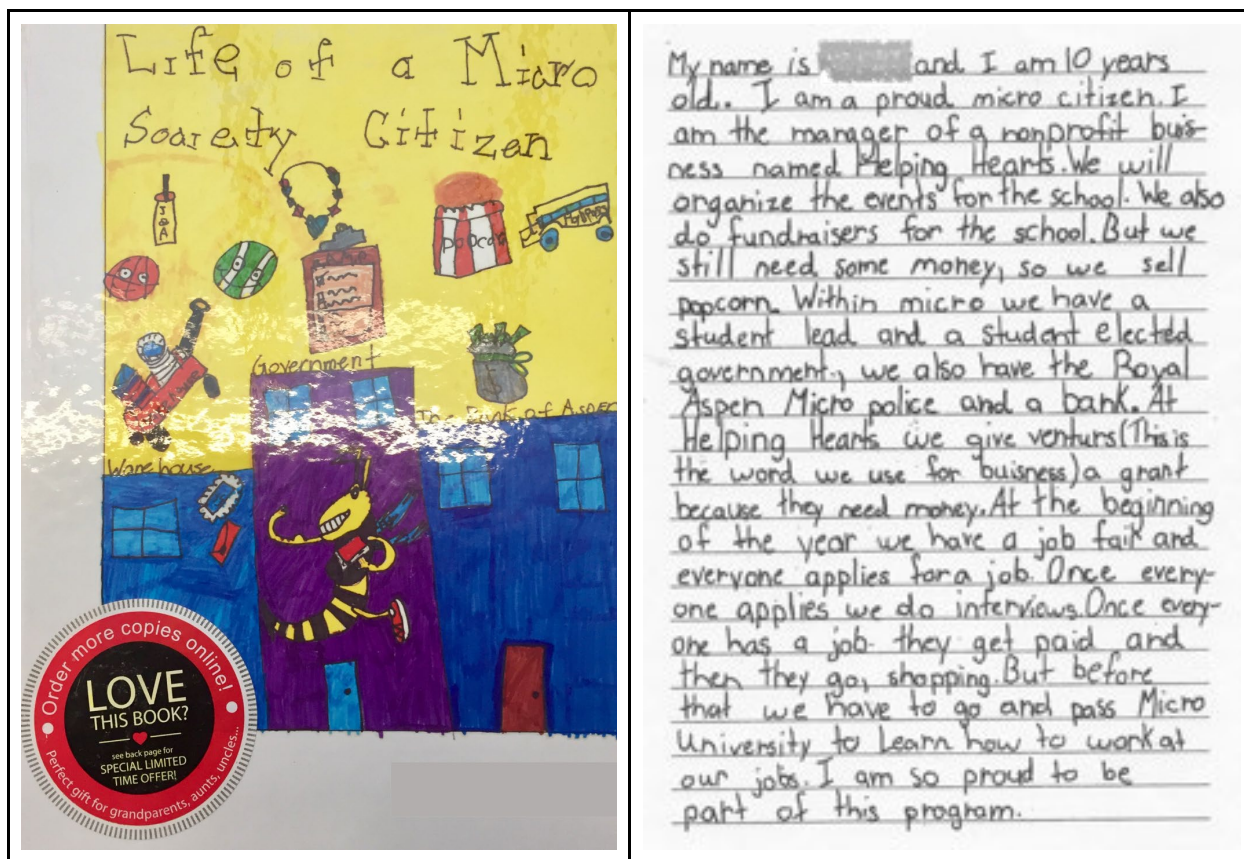 Life of a Micro
Soaiety Citizen
J
&
A
Popcorn
Government
The Bank of Aspen
Warehouse
Order more copies online!
LOVE
THIS BOOK?
see back page for
SPECIAL LIMITED
TIME OFFER!
Perfect gift for grandparents, aunts, uncles...
My name is and I am 10 years
old. I am a proud micro citizen. I
am the manager of a nonprofit buis-
ness named Helping Hearts. We will
organize the events for the school. We also
do fundraisers for the school. But we
still need some money, so we sell
popcorn. Within micro we have a
student lead and a student elected
government, we also have the Royal
Aspen Micro police and a bank. At
Helping Hearts we give venturs (This is
the word we use for buisness) a grant
because they need money. At the beginning
of the year we have a job fair and
everyone applies for a job. Once every-
one applies we do interviews. Once every-
one has a job they get paid and
then they go, shopping. But before
that we have to go and pass Micro
University to Learn how to work at
our jobs. I am so proud to be
part of this program.